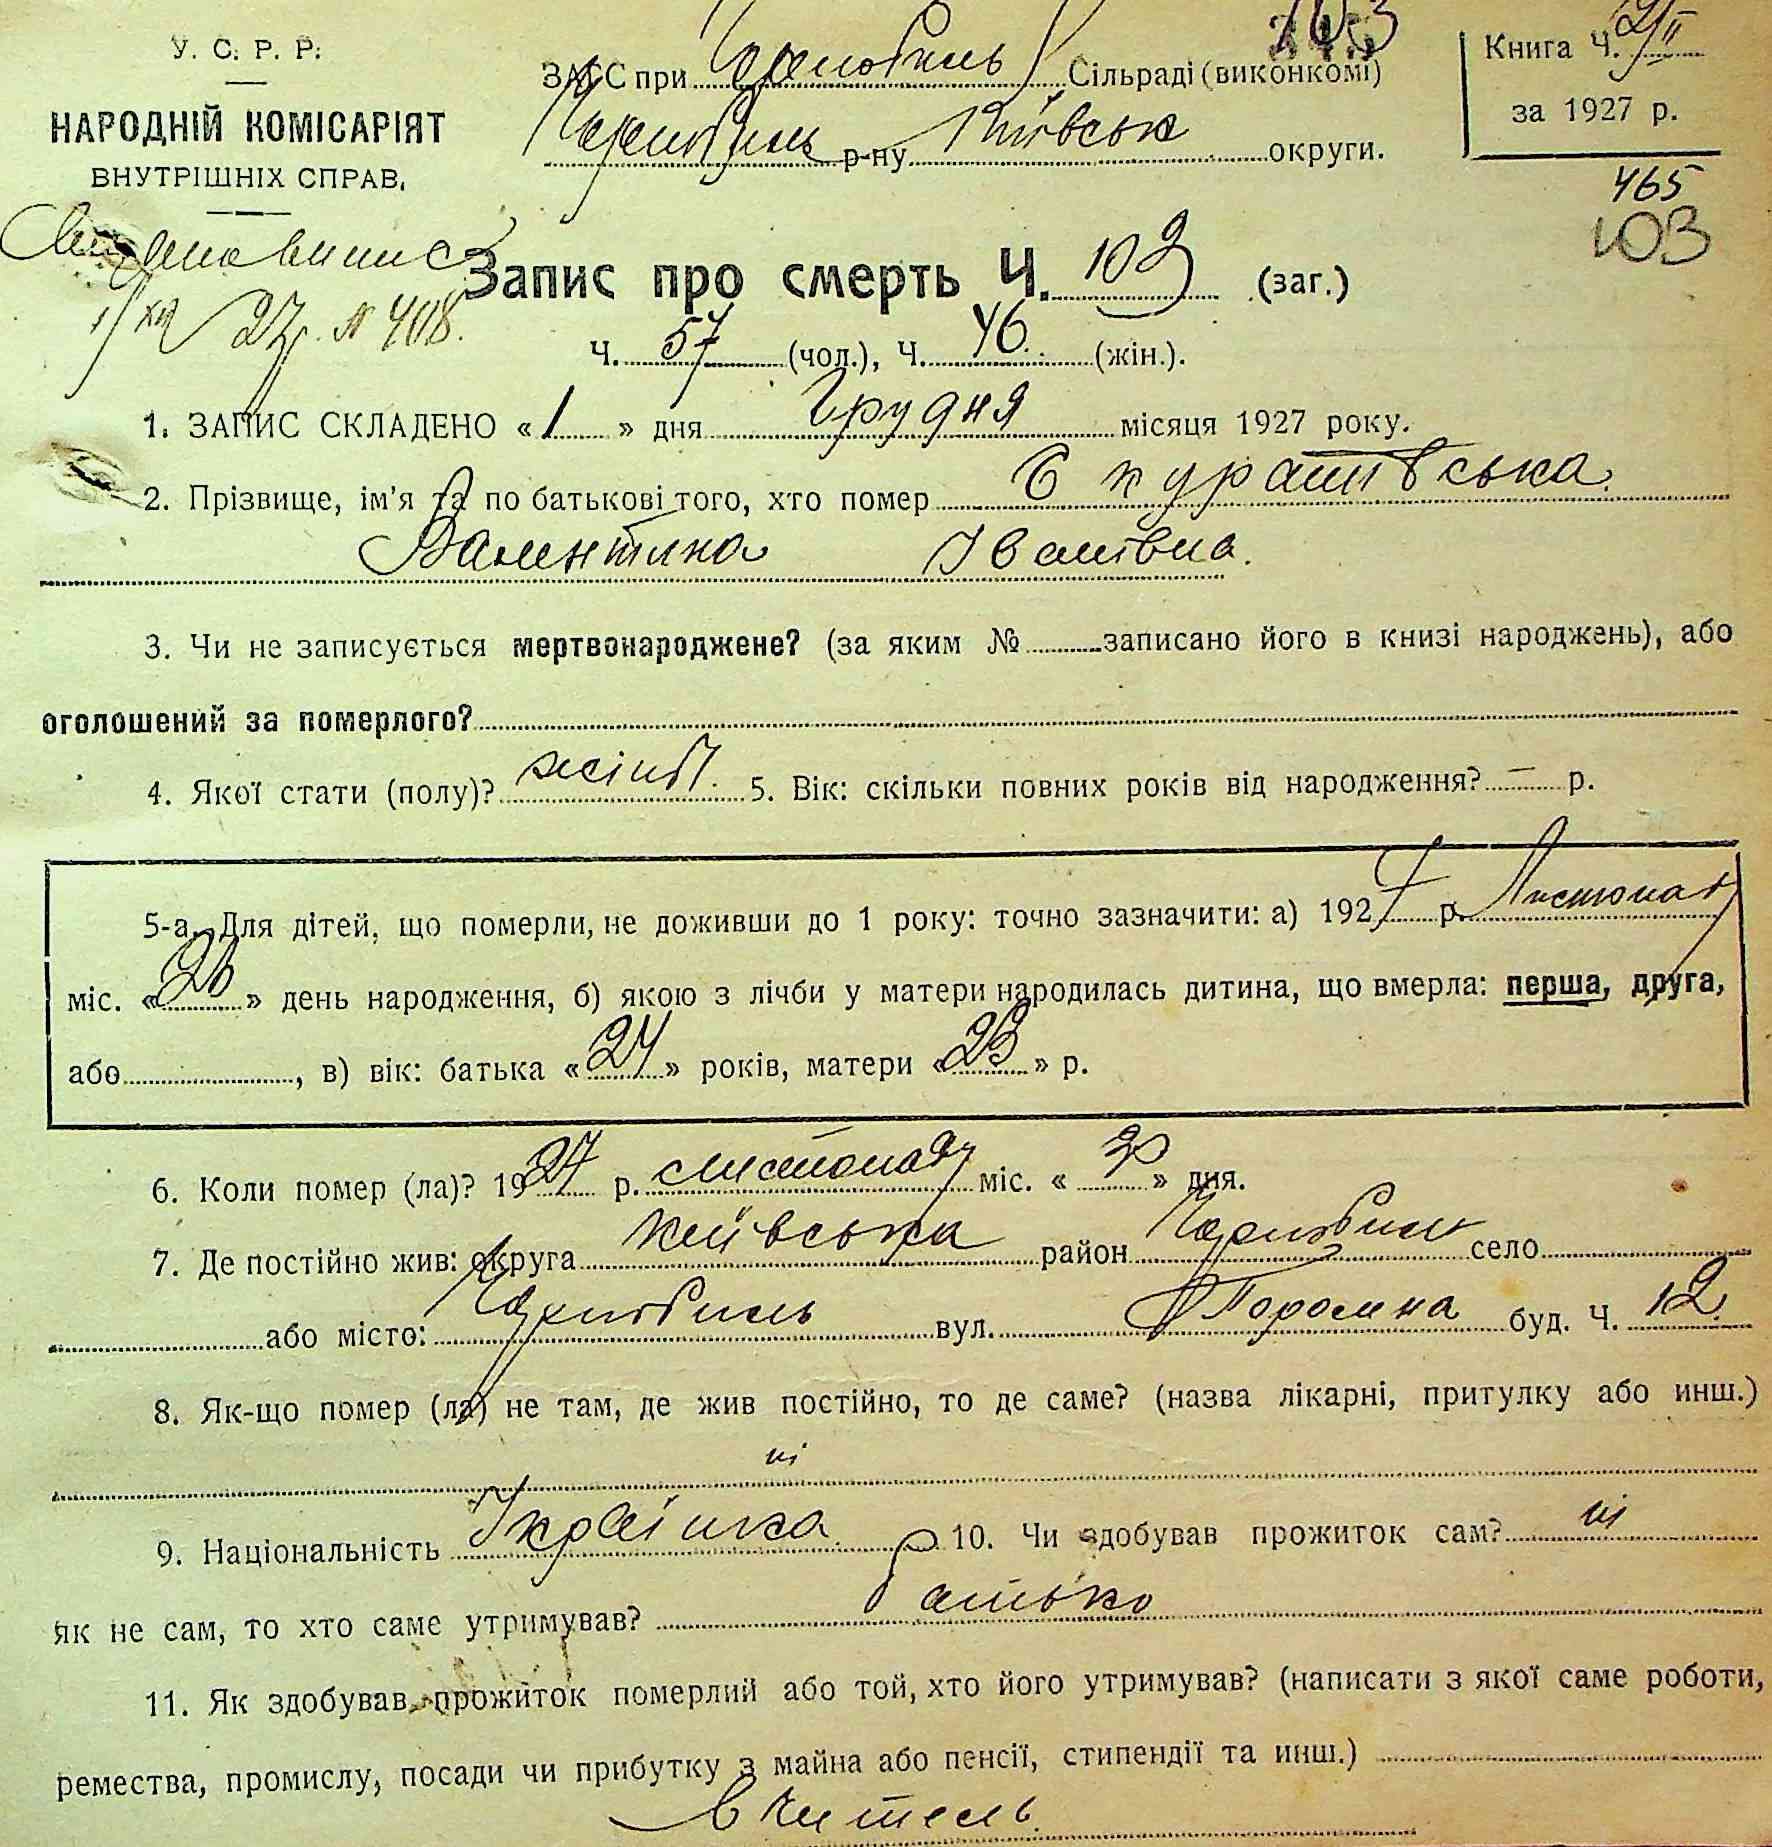 У. С. Р. Р.
НАРОДНІЙ КОМІСАРІЯТ
ВНУТРІШНІХ СПРАВ.
ЗАГС при Чорнобиль Сільраді (виконкомі)
Чорнобиль р-ну Київськ округи.
Книга Ч.
за 1927 р.
465
103
27 р. № 408.
Запис про смерть Ч. 103 (заг.)
Ч. 57 (чол.), Ч. 46 (жін.).
1. ЗАПИС СКЛАДЕНО «1» дня Грудня місяця 1927 року.
2. Прізвище, ім'я та по батькові того, хто помер Скуратівська
Валентина Іванівна.
3. Чи не записується мертвонароджене? (за яким № записано його в книзі народжень), або
оголошений за померлого?
4. Якої стати (полу)? жіноч. 5. Вік: скільки повних років від народження? – р.
5-а. Для дітей, що померли, не доживши до 1 року: точно зазначити: а) 1927 р. Листопад
міс. «26» день народження, б) якою з лічби у матери народилась дитина, що вмерла: перша, друга,
або , в) вік: батька «24» років, матери «23» р.
6. Коли помер (ла)? 1927 р. листопаду міс. «30» дня.
7. Де постійно жив: округа Київська район Чорнобиль село
або місто: Чорнобиль вул. буд. Ч. 12
8. Як-що помер (ла) не там, де жив постійно, то де саме? (назва лікарні, притулку або инш.)
ні
9. Національність Українка 10. Чи здобував прожиток сам? ні
як не сам, то хто саме утримував? батько
11. Як здобував прожиток померлий або той, хто його утримував? (написати з якої саме роботи,
ремества, промислу, посади чи прибутку з майна або пенсії, стипендії та инш.)
вчитель.